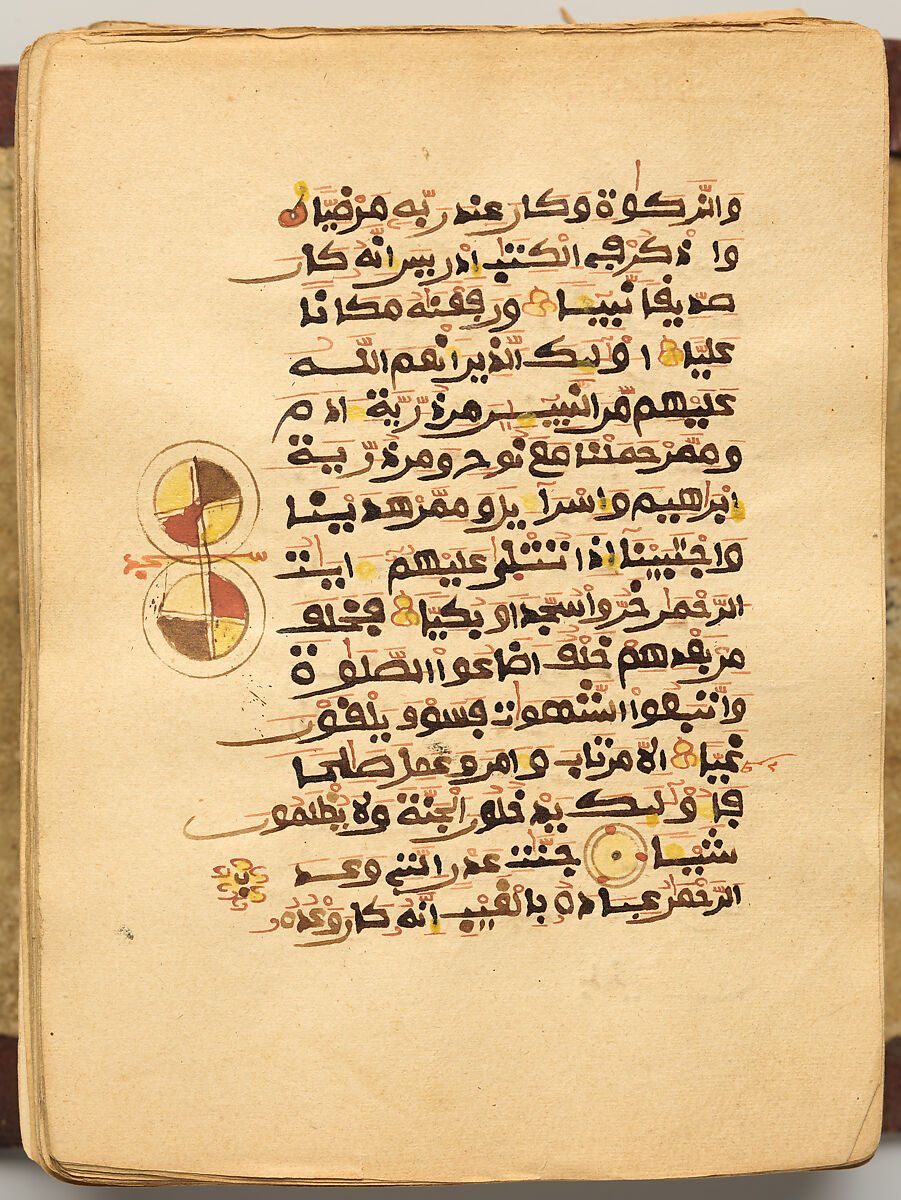 والزكوة وكان عند ربه مرضيا
واذكر في الكتب ادريس انه كان
صديقا نبيا ورفعنه مكانا
عليا اوليك الذين انعم الله
عليهم من النبيين من ذرية ادم
وممن حملنا مع نوح ومن ذرية
ابرهيم واسراءيل وممن هدينا
واجتبينا اذا تتلى عليهم ايت
الرحمن خروا سجدا وبكيا فخلف
من بعدهم خلف اضاعوا الصلوة
واتبعوا الشهوت فسوف يلقون
غيا الا من تاب وامن وعمل صلحا
فاوليك يدخلون الجنة ولا يظلمون
شيا جنت عدن التي وعد
الرحمن عباده بالغيب انه كان وعده